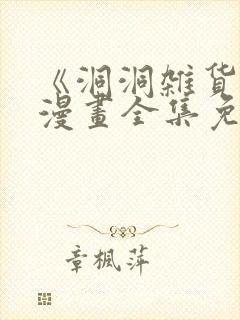 《洞洞雜貨
漫畫全集免
章楓萍